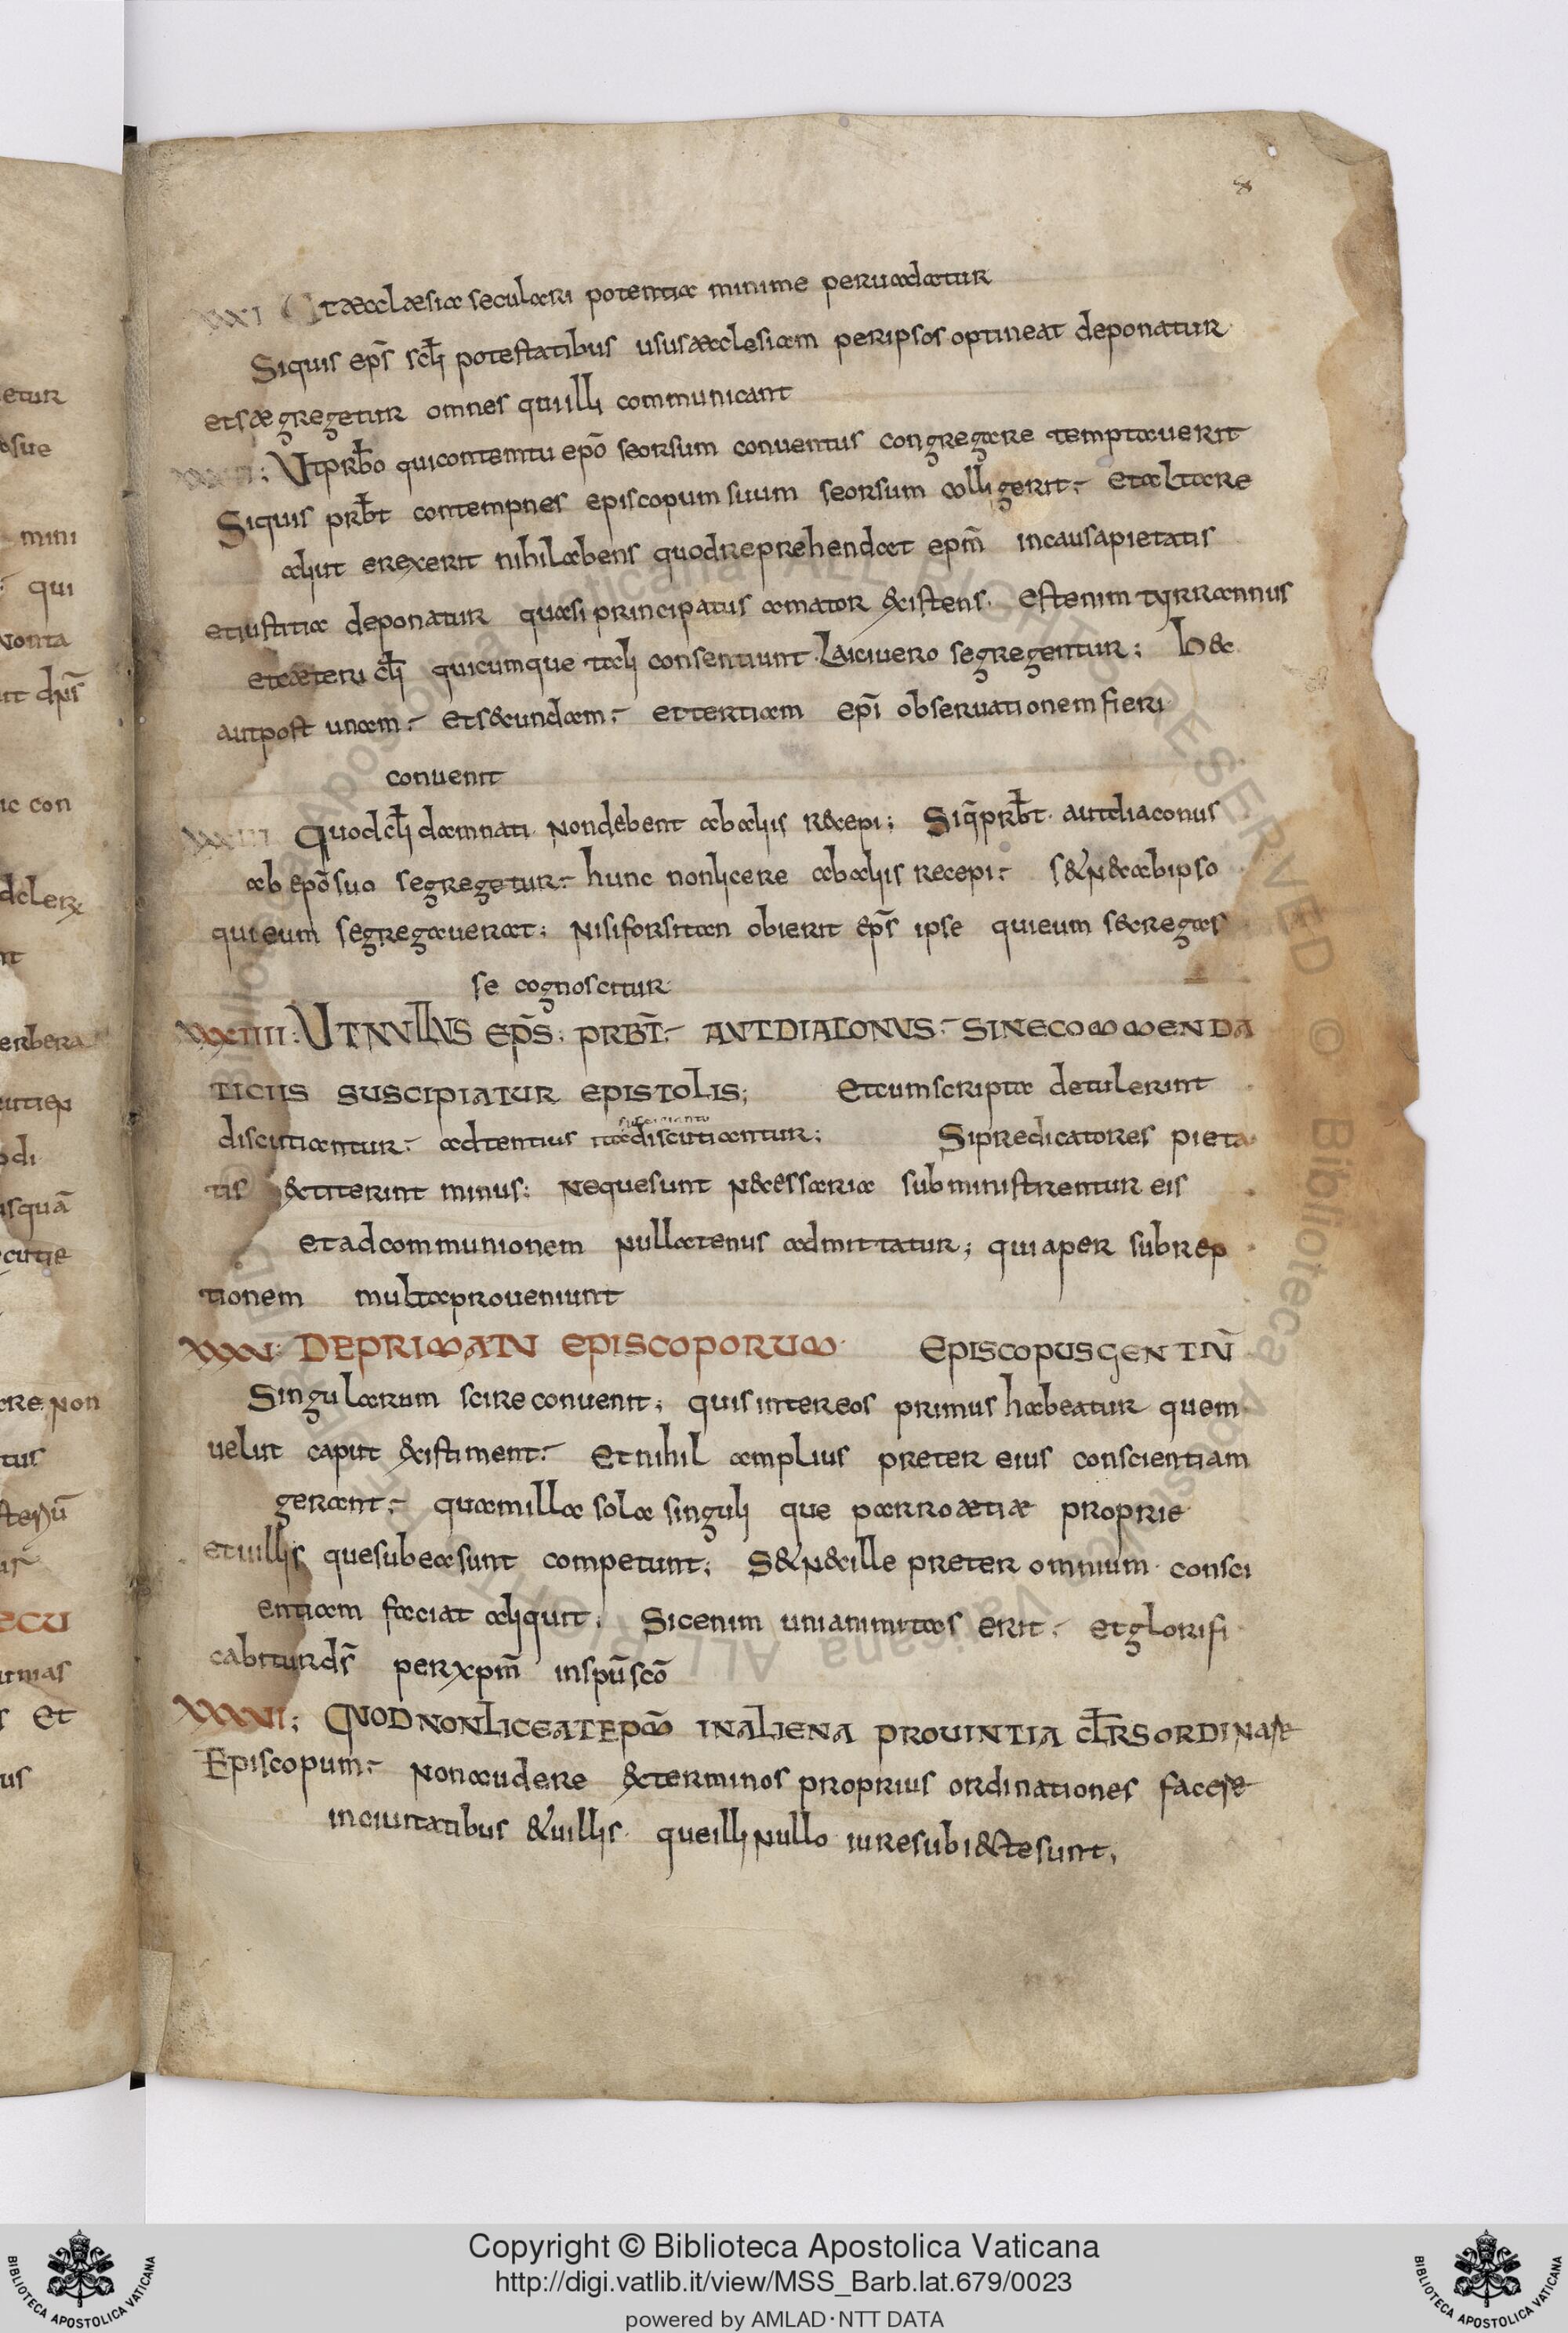 etur
osue
mini
qui
uonta
ut dn̄s
ic con
dcler
nt
erbera
utiep
odi
usquā
cutie
cre non
tus
ECU
imas
s et
us
x
XXXI Ut æcclæsia seculari potentia minime peruadatur
Siquis ep̄s scłi potestatibus usus æcclesiam per ipsos optineat deponatur
et sægregetur omnes qui illi communicant
: Ut prb̄o qui contemtu ep̄o seorsum conuentus congregare temptauerit
Siquis prb̄t contempnes episcopum suum seorsum colligerit; et altare
aliut erexerit nihil abens quod reprehendat ep̄m in causa pietatis
et iustitia deponatur quasi principatus amator existens. est enim tyrrannus
et cæteri cłi quicumque tali consentiunt. Laici uero segregentur; hæc
aut post unam; et secundam; et tertiam ep̄i obseruationem fieri
conuenit
XXXIII Quod cłi damnati non debent ab aliis recepi; Si q̄ prb̄t. aut diaconus
ab ep̄o suo segregetur; hunc non licere ab aliis recepi; s&n& ab ipso
qui eum segregauerat; nisi forsitan obierit ep̄s ipse qui eum secregas
se cognoscitur
XXXIIII: UT NULLUS EP̄S; PRBT̄; AUT DIACONUS; SINE COMMENDA
TICIIS SUSCIPIATUR EPISTOLIS; Et cum scripta detulerint
discutiantur; adtentius ita discutiantur; Si predicatores pieta
tis &titerint minus; neque sunt necessaria subministrentur eis
et ad communionem nullatenus admittatur; quia per subrep
tionem multa proueniunt
XXXV: DE PRIMATU EPISCOPORUM EPISCOPUS GENTIŪ
Singularum scire conuenit; quis inter eos primus habeatur quem
uelut caput existiment; Et nihil amplius preter eius conscientiam
gerant; quam illa sola singuli que parroætiæ proprie
et uillis que sub ea sunt competunt; S&n& ille preter omnium consci
entiam faciat aliquit; Sic enim unianimitas erit; et glorifi
cabitur ds̄ per xpm̄ in spū scō
XXXVI; QUOD NON LICEAT EPŌ IN ALIENA PROUINTIA CLR̄S ORDINARE
Episcopum; non audere &terminos proprius ordinationes facere
in ciuitatibus & uillis. que illi nullo iure subiecte sunt;
Copyright © Biblioteca Apostolica Vaticana
http://digi.vatlib.it/view/MSS_Barb.lat.679/0023
powered by AMLAD·NTT DATA
BIBLIOTECA APOSTOLICA VATICANA
BIBLIOTECA APOSTOLICA VATICANA